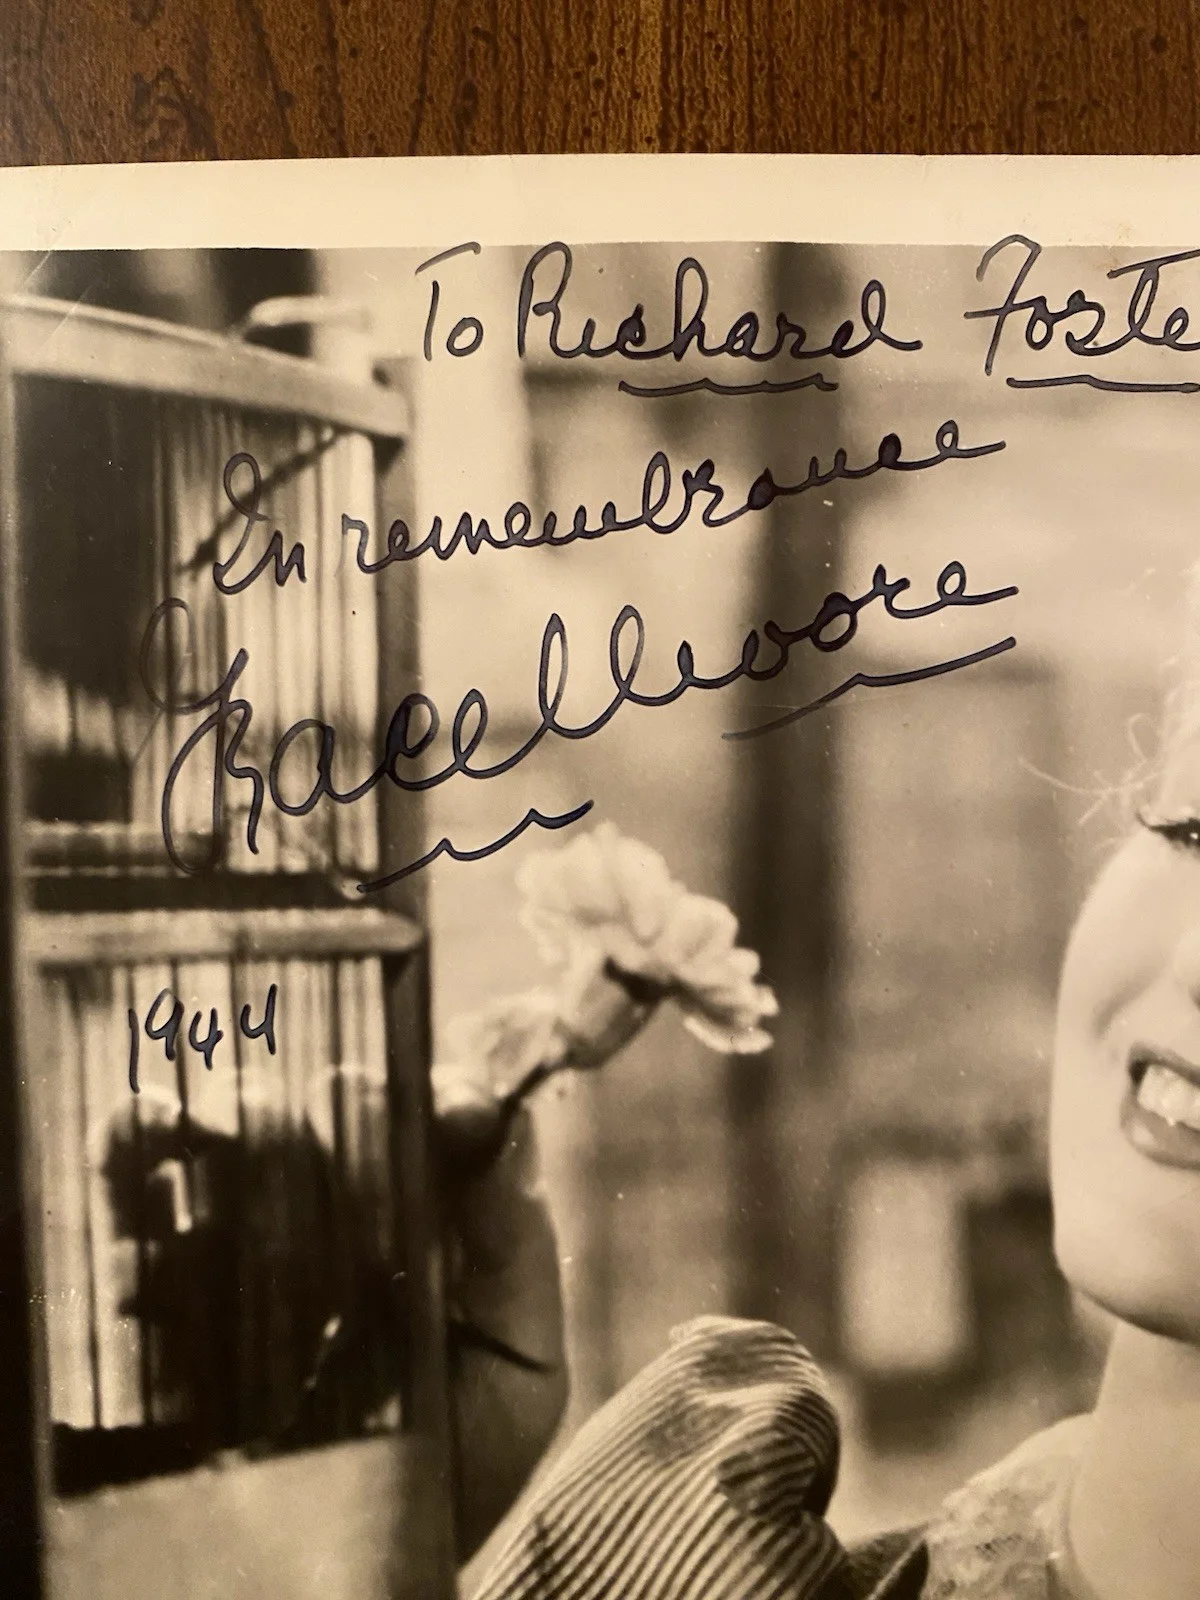 To Richard Foste
In remembrance
Grace Moore
1944